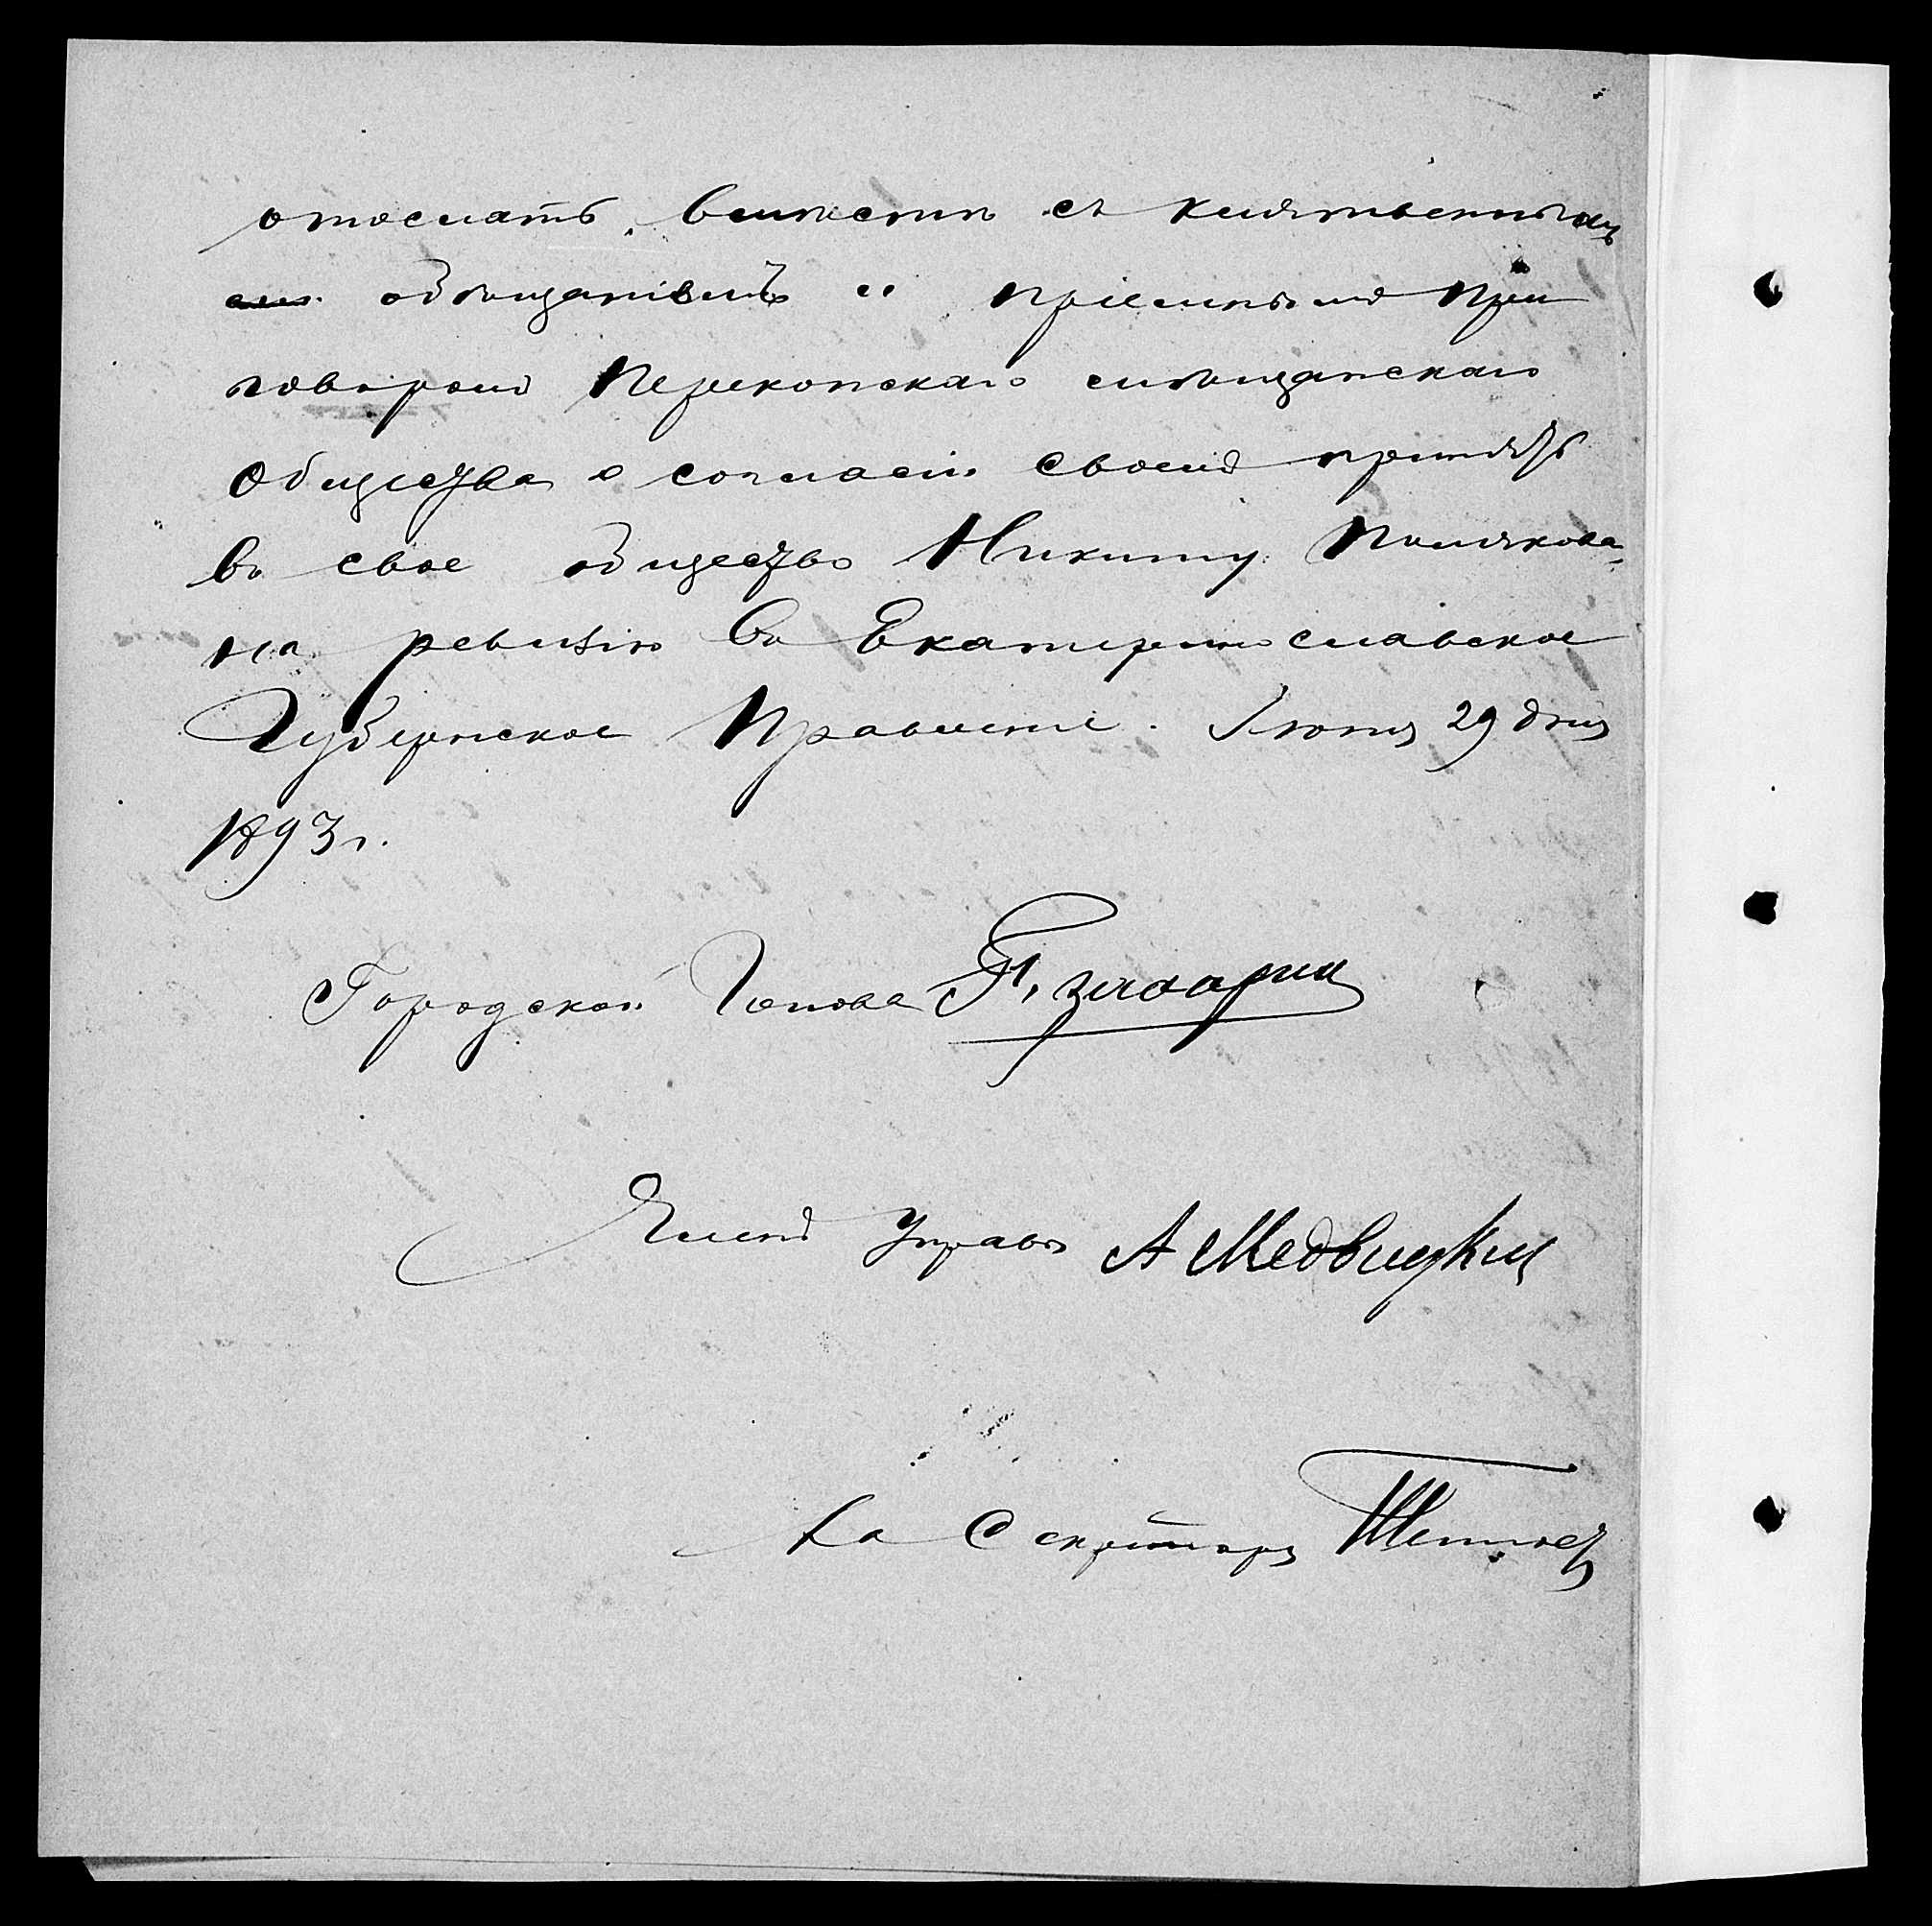 отослать вместѣ съ клятвеннымъ
обѣщаніемъ и пріемнымъ при
говоромъ Перекопскаго мѣщанскаго
Общества о согласіи своемъ принять
въ свое общество Никиту Полякова,
на ревизію въ Екатеринославское
Губернское Правленіе. Іюня 29 дня
1893 г.
Городской Голова
Членъ Управы А Медвицкій
За Секретаря